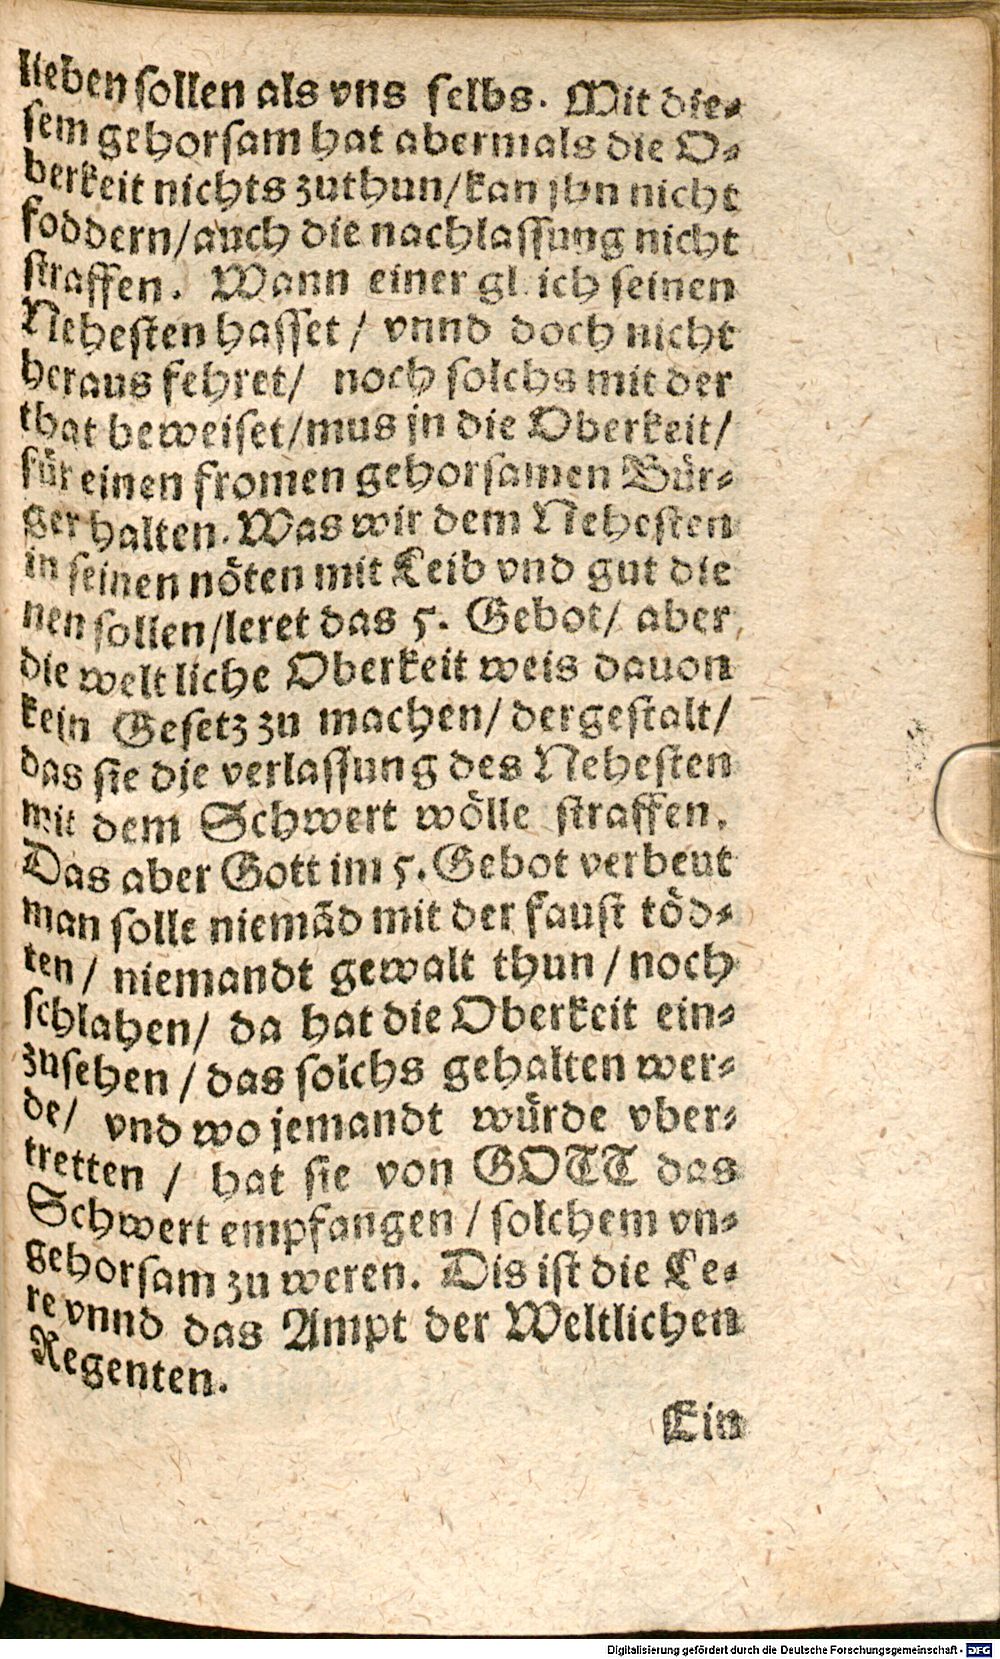 lieben sollen als vns selbs. Mit die⸗
sem gehorsam hat abermals die O⸗
berkeit nichts zuthun/kan jhn nicht
foddern/auch die nachlassung nicht
straffen. Wann einer gleich seinen
Nehesten hasset / vnnd doch nicht
heraus fehret/ noch solchs mit der
that beweiset/mus jn die Oberkeit/
für einen fromen gehorsamen Bür⸗
ger halten. Was wir dem Nehesten
in seinen nöten mit Leib vnd gut die
nen sollen/leret das 5. Gebot/ aber
die weltliche Oberkeit weis dauon
kein Gesetz zu machen/ dergestalt/
das sie die verlassung des Nehesten
mit dem Schwert wölle straffen.
Das aber Gott im 5. Gebot verbeut
man solle niemãd mit der faust töd⸗
ten / niemandt gewalt thun / noch
schlahen/ da hat die Oberkeit ein⸗
zusehen / das solchs gehalten wer⸗
de/ vnd wo jemandt würde vber⸗
tretten / hat sie von GOTT das
Schwert empfangen / solchem vn⸗
gehorsam zu weren. Dis ist die Le⸗
re vnnd das Ampt der Weltlichen
Regenten.
Ein
Digitalisierung gefördert durch die Deutsche Forschungsgemeinschaft - DFG